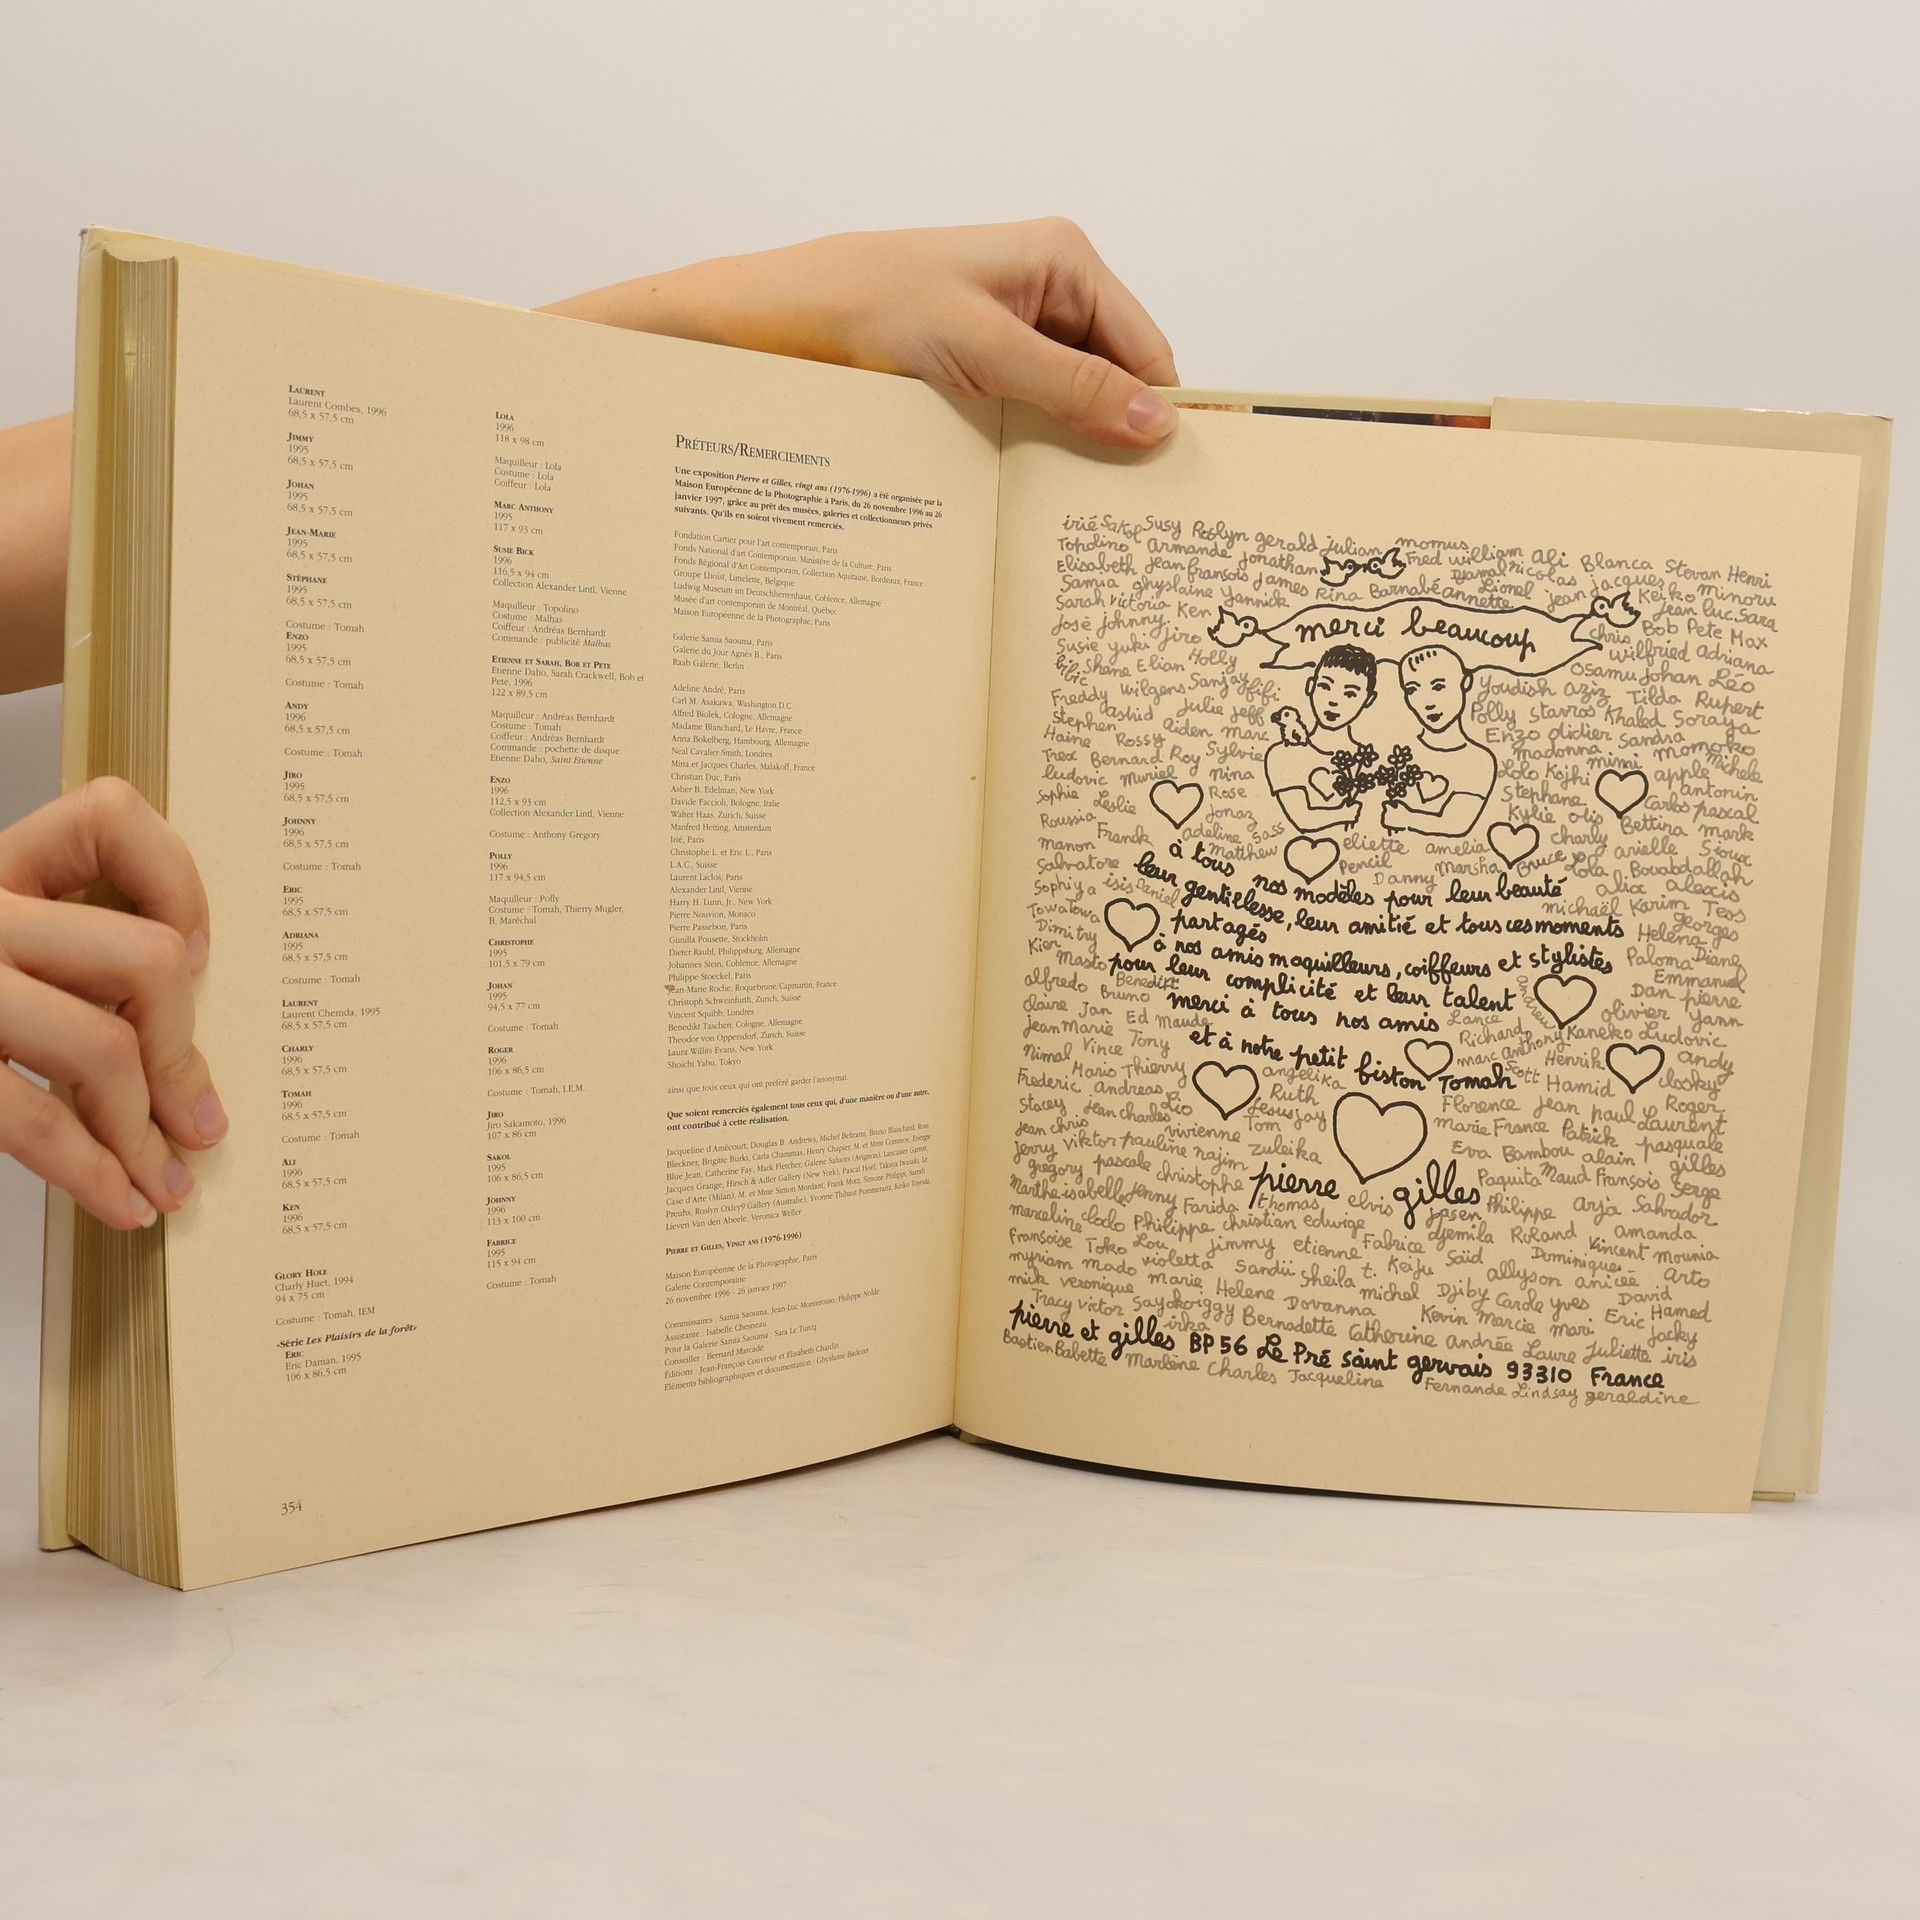 LAURENT
Laurent Combes, 1996
68,5 x 57,5 cm
JIMMY
1995
68,5 x 57,5 cm
JOHAN
1995
68,5 x 57,5 cm
JEAN-MARIE
1995
68,5 x 57,5 cm
STÉPHANE
1995
68,5 x 57,5 cm
Costume : Tomah
ENZO
1995
68,5 x 57,5 cm
Costume : Tomah
ANDY
1996
68,5 x 57,5 cm
Costume : Tomah
JIRO
1995
68,5 x 57,5 cm
JOHNNY
1996
68,5 x 57,5 cm
Costume : Tomah
ERIC
1995
68,5 x 57,5 cm
ADRIANA
1995
68,5 x 57,5 cm
Costume : Tomah
LAURENT
Laurent Chemda, 1995
68,5 x 57,5 cm
CHARLY
1996
68,5 x 57,5 cm
TOMAH
1996
68,5 x 57,5 cm
Costume : Tomah
ALI
1996
68,5 x 57,5 cm
KEN
1996
68,5 x 57,5 cm
GLORY HOLE
Charly Huet, 1994
94 x 75 cm
Costume : Tomah, IEM
«Série Les Plaisirs de la forêt»
ERIC
Eric Daman, 1995
106 x 86,5 cm
354
LOLA
1996
118 x 98 cm
Maquilleur : Lola
Costume : Lola
Coiffeur : Lola
MARC ANTHONY
1995
117 x 93 cm
SUSIE BICK
1996
116,5 x 94 cm
Collection Alexander Lintl, Vienne
Maquilleur : Topolino
Costume : Malhas
Coiffeur : Andréas Bernhardt
Commande : publicité Malhas
ETIENNE ET SARAH, BOB ET PETE
Etienne Daho, Sarah Crackwell, Bob et
Pete, 1996
122 x 89,5 cm
Maquilleur : Andréas Bernhardt
Costume : Tomah
Coiffeur : Andréas Bernhardt
Commande : pochette de disque
Etienne Daho, Saint Etienne
ENZO
1996
112,5 x 93 cm
Collection Alexander Lintl, Vienne
Costume : Anthony Gregory
POLLY
1996
117 x 94,5 cm
Maquilleur : Polly
Costume : Tomah, Thierry Mugler,
B. Maréchal
CHRISTOPHE
1995
101,5 x 79 cm
JOHAN
1995
94,5 x 77 cm
Costume : Tomah
ROGER
1996
106 x 86,5 cm
Costume : Tomah, I.E.M.
JIRO
Jiro Sakamoto, 1996
107 x 86 cm
SAKOL
1995
106 x 86,5 cm
JOHNNY
1996
113 x 100 cm
FABRICE
1995
115 x 94 cm
Costume : Tomah
PRÉTEURS/REMERCIEMENTS
Une exposition Pierre et Gilles, vingt ans (1976-1996) a été organisée par la
Maison Européenne de la Photographie à Paris, du 26 novembre 1996 au 26
janvier 1997, grâce au prêt des musées, galeries et collectionneurs privés
suivants. Qu'ils en soient vivement remerciés.
Fondation Cartier pour l'art contemporain, Paris
Fonds National d'art Contemporain, Ministère de la Culture, Paris
Fonds Régional d'Art Contemporain, Collection Aquitaine, Bordeaux, France
Groupe Lhoist, Limelette, Belgique
Ludwig Museum im Deutschherrenhaus, Coblence, Allemagne
Musée d'art contemporain de Montréal, Québec
Maison Européenne de la Photographie, Paris
Galerie Samia Saouma, Paris
Galerie du Jour Agnès B., Paris
Raab Galerie, Berlin
Adeline André, Paris
Carl M. Asakawa, Washington D.C.
Alfred Biolek, Cologne, Allemagne
Madame Blanchard, Le Havre, France
Anna Bokelberg, Hambourg, Allemagne
Neal Cavalier-Smith, Londres
Mina et Jacques Charles, Malakoff, France
Christian Duc, Paris
Asher B. Edelman, New York
Davide Faccioli, Bologne, Italie
Walter Haas, Zurich, Suisse
Manfred Heiting, Amsterdam
Irié, Paris
Christophe L. et Eric L., Paris
L.A.C., Suisse
Laurent Laclos, Paris
Alexander Lintl, Vienne
Harry H. Lunn, Jr., New York
Pierre Nouvion, Monaco
Pierre Passebon, Paris
Gunilla Pousette, Stockholm
Dieter Rauhl, Philippsburg, Allemagne
Johannes Stein, Coblence, Allemagne
Philippe Stoeckel, Paris
Jean-Marie Roche, Roquebrune/Capmartin, France
Christoph Schweinfurth, Zurich, Suisse
Vincent Squibb, Londres
Benedikt Taschen, Cologne, Allemagne
Theodor von Oppersdorf, Zurich, Suisse
Laura Willits Evans, New York
Shoichi Yabu, Tokyo
ainsi que tous ceux qui ont préféré garder l'anonymat.
Que soient remerciés également tous ceux qui, d'une manière ou d'une autre,
ont contribué à cette réalisation.
Jacqueline d'Amécourt, Douglas B. Andrews, Michel Beltrami, Bruno Blanchard, Ross
Bleckner, Brigitte Burki, Carla Chammas, Henry Chapier, M. et Mme Conmoy, Energie
Blue Jean, Catherine Fay, Mark Fletcher, Galerie Saluces (Avignon), Lancaster Garret,
Jacques Grange, Hirsch & Adler Gallery (New York), Pascal Hoël, Takaya Iwasaki, Le
Case d'Arte (Milan), M. et Mme Simon Mordant, Frank Motz, Simone Philippi, Sarah
Preuhs, Roslyn Oxley9 Gallery (Australie), Yvonne Thibaut Pommeranz, Keiko Toyoda,
Lieven Van den Abeele, Veronica Weller
PIERRE ET GILLES, VINGT ANS (1976-1996)
Maison Européenne de la Photographie, Paris
Galerie Contemporaine
26 novembre 1996 - 26 janvier 1997
Commissaires : Samia Saouma, Jean-Luc Monterosso, Philippe Nolde
Assistante : Isabelle Chesneau
Pour la Galerie Samia Saouma : Sara Le Turcq
Conseiller : Bernard Marcadé
Éditions : Jean-François Couvreur et Elisabeth Chardin
Eléments bibliographiques et documentation : Ghyslaine Badezet
irié Sakol Susy Roslyn gerald julian momus
Topolino Armande jonathan Fred william Ali Blanca Stevan Henri
Elisabeth jean françois james Rina Barnabé annette Djamal nicolas Lionel jean jacques Keiko minoru
Samia ghyslaine yannick jean luc Sara
Sarah victoria Ken
José johnny jiro merci beaucoup chris Bob Pete Max
Susie yuki Holly wilfried adriana
bibic Shane Elian osamu johan Léo
Freddy wilgens Sanjay fifi youdish aziz Tilda Rupert
astrid julie jeff Polly stavros Khaled Soraya
Stephen aiden marc Enzo didier Sandra momoko
Haine Rossy Sylvie madonna mimi michele
Trex Bernard Roy Lolo Kojhi apple
ludovic muriel nina antonin
Sophie Leslie Rose Stephane Carlos pascal
Roussia jonaz Kylie otis Bettina mark
manon Franck adeline Sass eliette amelia charly arielle Sioux
Salvatore matthew Pencil marsha Bruce Lola Bouabdallah
Danny alix alexis
à tous nos modèles pour leur beauté
Sophiya isis Daniel michaël Karim Teos
leur gentillesse, leur amitié et tous ces moments
TowaTowa georges
partagés
Dimitry Helena
à nos amis maquilleurs, coiffeurs et stylistes
Kier Paloma Diane
Masto Emmanuel
pour leur complicité et leur talent
alfredo Bruno Benedikt andrew Dan pierre
merci à tous nos amis
claire Jan Ed Maude Lance olivier yann
jean Marie Tony Richard Kaneko Ludovic
et à notre petit biston Tomah
nimal Vince angelika marc anthony Scott Henrik andy
Mario Thierry Ruth Hamid closky
Frederic andreas Lio jesus jay Florence jean paul Roger
Stacey jean charles Tom marie France Patrick Laurent
jean chris vivienne zuleika pasquale
jerry viktor pauline najim Eva Bambou alain gilles
gregory pascale christophe Paquita Maud François Serge
pierre gilles
Marthe isabelle jenny Farida thomas elvis jasen Philippe arja Salvador
marceline clodo Philippe christian edwige Fabrice djemila Roland amanda
Fransoise Toko Lou jimmy etienne Keiju Saïd Dominique Vincent mounia
myriam mado violetta Sandii Sheila t. allyson anicée Arto
mick veronique marie Helene Dovanna michel Djiby Carole yves David
Tracy victor Sayoko iggy Bernadette Catherine Kevin Marcie mari Eric Hamed
irka andrée Laure Juliette jacky
pierre et gilles BP 56 Le Pré saint gervais 93310 France
iris
Bastien Babette Marlène Charles Jacqueline Fernande Lindsay geraldine